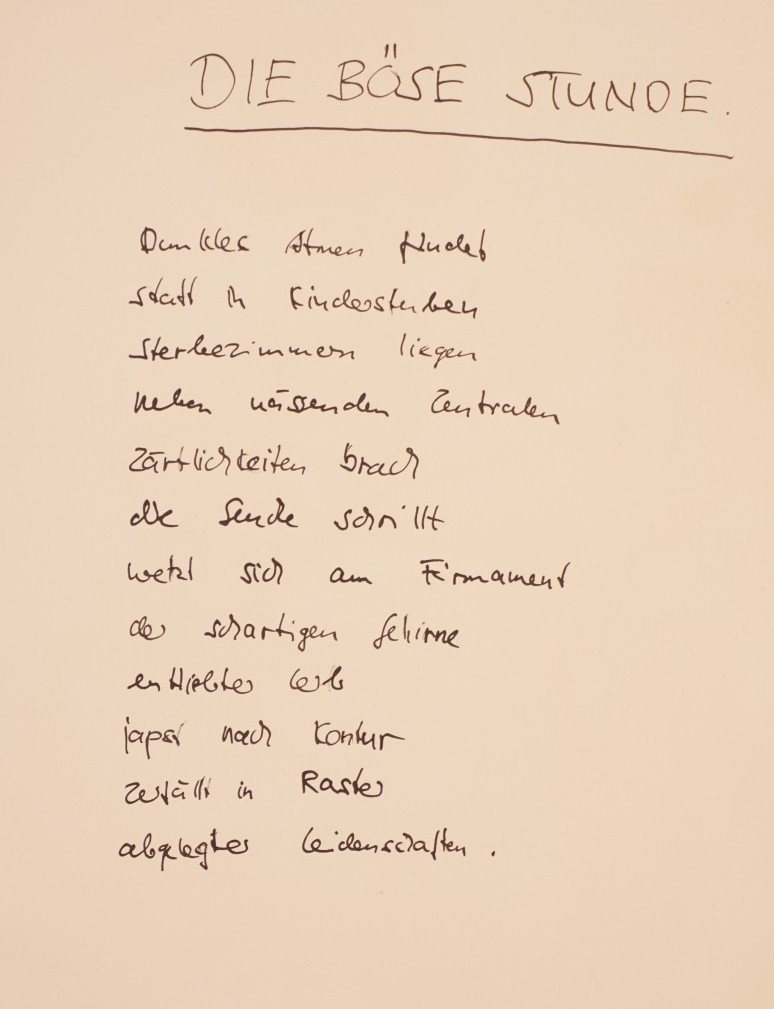 DIE BÖSE STUNDE.
Dunkles Atmen findet
statt in Kinderstuben
Sterbezimmern liegen
neben nässenden Zentralen
Zärtlichkeiten brach
die Sende schrillt
wetzt sich am Firmament
der schartigen Gehirne
entliebter Leib
japst nach Kontur
zerfällt in Raster
abgelegter Leidenschaften.